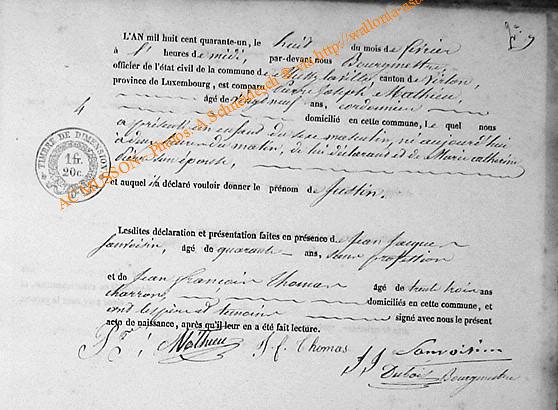 L'AN mil huit cent quarante-un, le huit du mois de février
à heures de midi, par-devant nous Bourgmestre,
officier de l'état civil de la commune de canton de Virton,
province de Luxembourg, est comparu Pierre Joseph Mathieu,
âgé de vingt neuf ans, cordonnier
domicilié en cette commune, Le quel nous
4
a présenté un enfant du sexe masculin, né aujourd'hui
à heures du matin, de lui déclarant et de Marie Catherine
son épouse,
et auquel il a déclaré vouloir donner le prénom de Justin.
TIMBRE DE DIMENSION
1 fr.
20 c.
Lesdites déclaration et présentation faites en présence de Jean Jacques
âgé de quarante ans, sans profession
et de Jean François Thomas âgé de trois ans
charron, domiciliés en cette commune, et
ont les père et témoins signé avec nous le présent
acte de naissance, après qu'il leur en a été fait lecture.
Mathieu J. f. Thomas
Dubois Bourgmestre
Photos: A Schneidesch @ via http://wallonia-asb